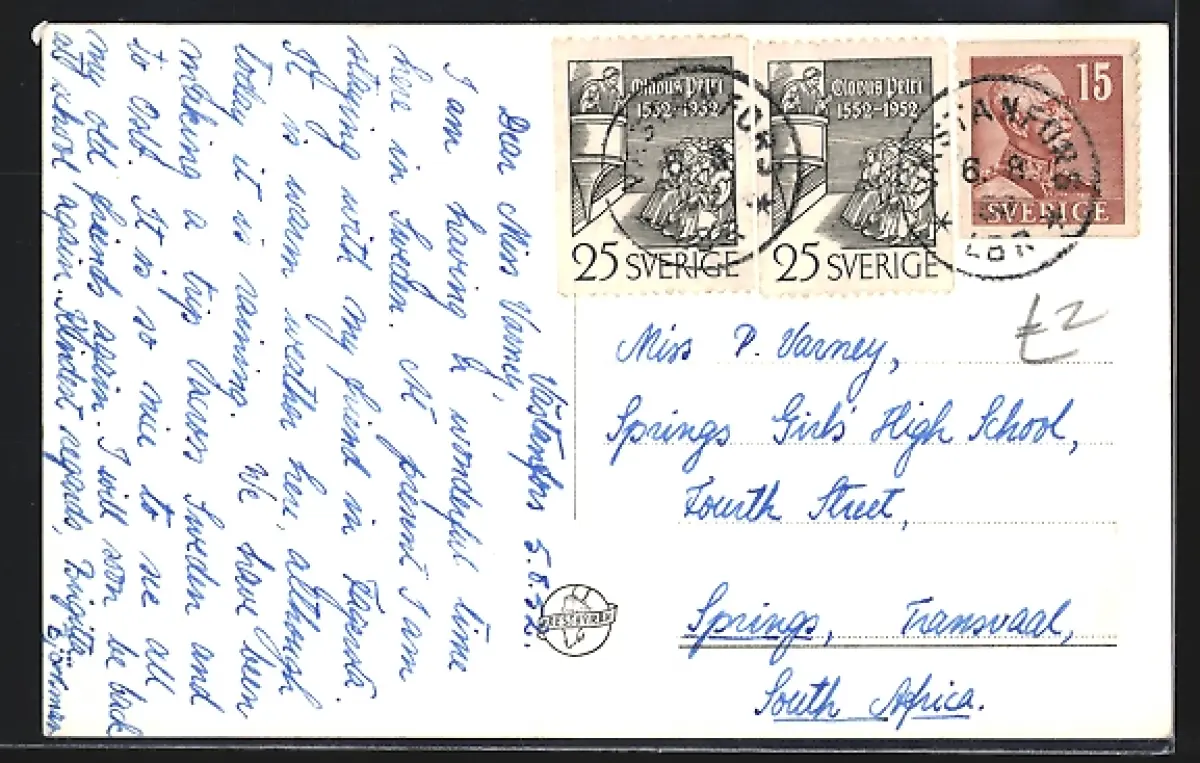 Västanfors 5.8.52.
Dear Miss Varney,
I am having a wonderful time
here in Sweden. At present I am
staying with my friend in Fagersta.
It is warm weather here, although
today it is raining. We have been
making a trip through Sweden and
to Oslo. It is so nice to see all
my old friends again. I will soon be back
at school again. Kindest regards, Birgitta
Olavus Petri
1552-1952
25 SVERIGE
Olavus Petri
1552-1952
25 SVERIGE
15
SVERIGE
VÄSTANFORS
6. 8.
LBR
£2
Miss P. Varney,
Springs Girls' High School,
Fourth Street,
Springs, Transvaal,
South Africa.